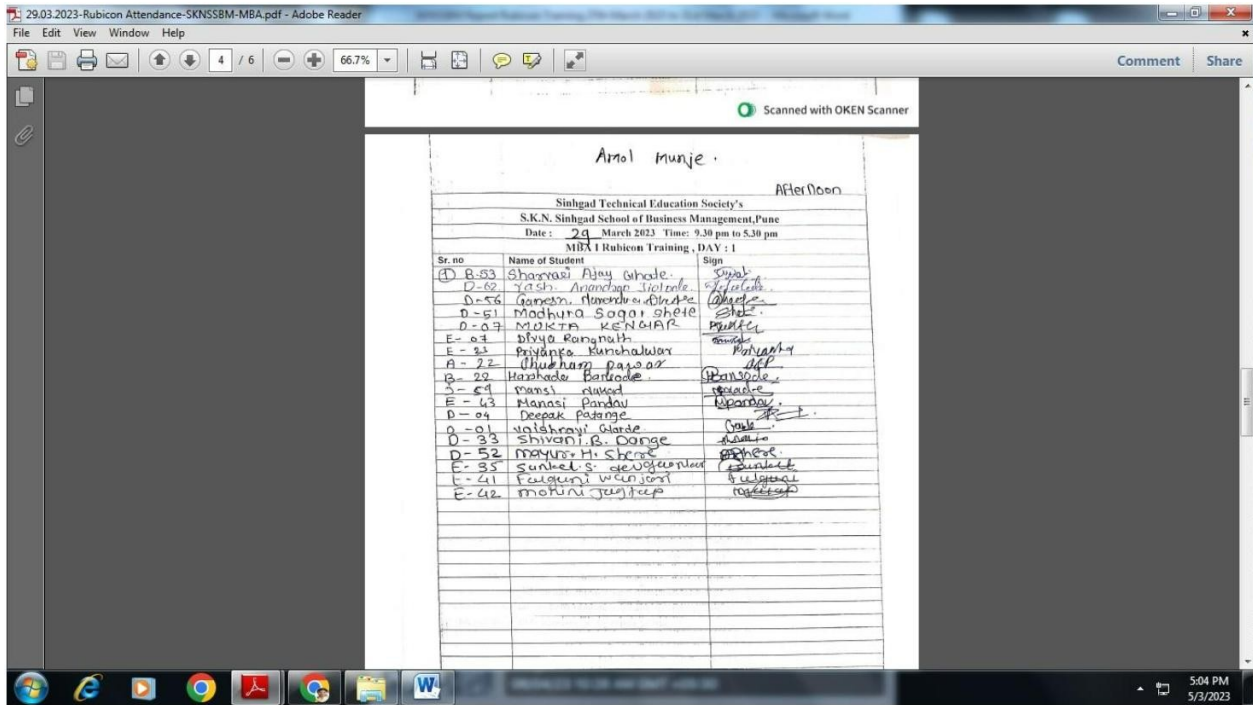 29.03.2023-Rubicon Attendance-SKNSSBM-MBA.pdf - Adobe Reader
File Edit View Window Help
4 / 6 66.7% Comment Share
Scanned with OKEN Scanner
Amol Munje .
AfterNoon
Sinhgad Technical Education Society's
S.K.N. Sinhgad School of Business Management,Pune
Date : 29 March 2023 Time: 9.30 pm to 5.30 pm
MBA I Rubicon Training , DAY : 1
Sr. no Name of Student Sign
1 B-53 Sharvari Ajay
D-62 Yash.
D-56 Ganesh.
D-51 Madhura Sagar Shete
D-07 MUKTA KENGAR
E-07 Divya Rangnath
E-21 Priyanka Kunchalwar
A-22 pawar
B-22 Harshada Bansode . Bansode
59 Mansi
E-43 Manasi Pandav Mpandav.
D-04 Deepak Patange
-01 Vaishnavi Garde
D-33 Shivani.B. Dange
D-52 Mayur. H. Shere
E-35 Sanket.S.
E-41 Falguni Wanjari Falguni
E-42 Mohini Jagtap
5:04 PM
5/3/2023